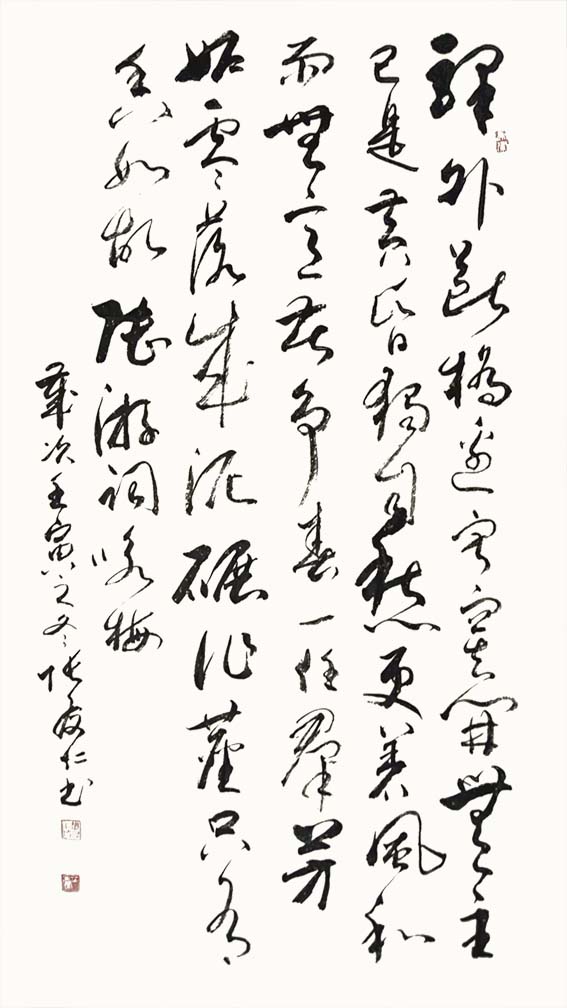 驛外斷橋邊寂寞開無主
已是黃昏獨自愁更著風和
雨無意苦爭春一任羣芳
妬零落成泥碾作塵只有
香如故陸游詞咏梅
歲次壬寅之冬張仁書